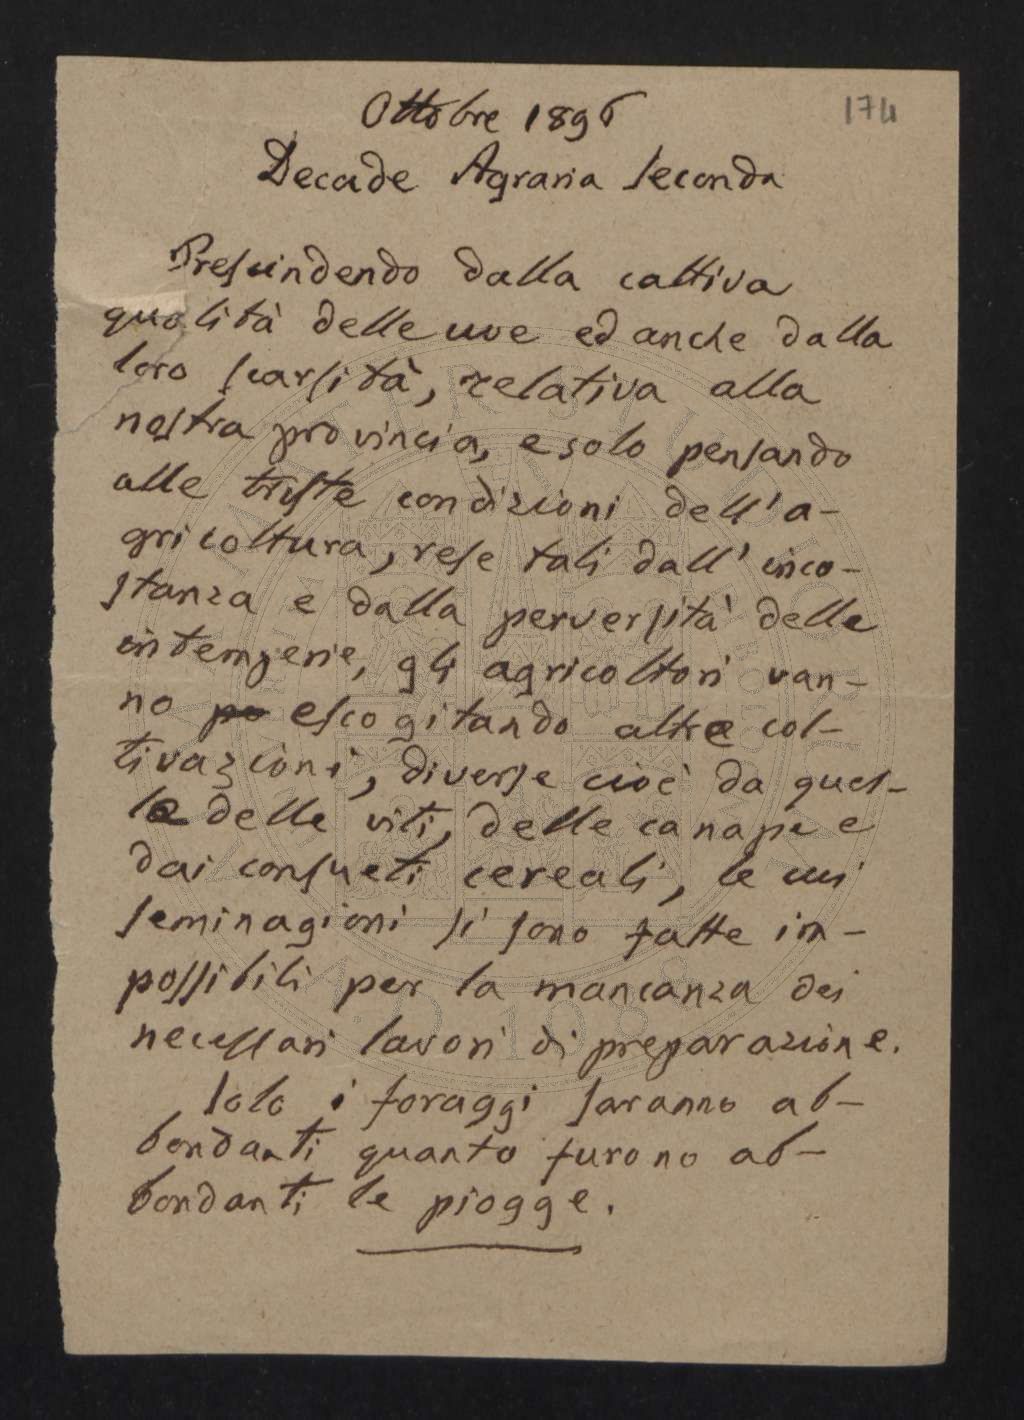 174
Ottobre 1896
Decade Agraria Seconda
Prescindendo dalla cattiva
qualità delle uve ed anche dalla
loro scarsità, relativa alla
nostra provincia, e solo pensando
alle triste condizioni dell'a-
gricoltura, rese tali dall'inco-
stanza e dalla perversità delle
intemperie, gli agricoltori van-
no po escogitando altre col-
tivazioni, diverse cioè da quel-
le delle viti, delle canape e
dai consueti cereali, le cui
seminagioni si sono fatte im-
possibili per la mancanza dei
necessari lavori di preparazione.
Solo i foraggi saranno ab-
bondanti quanto furono ab-
bondanti le piogge.